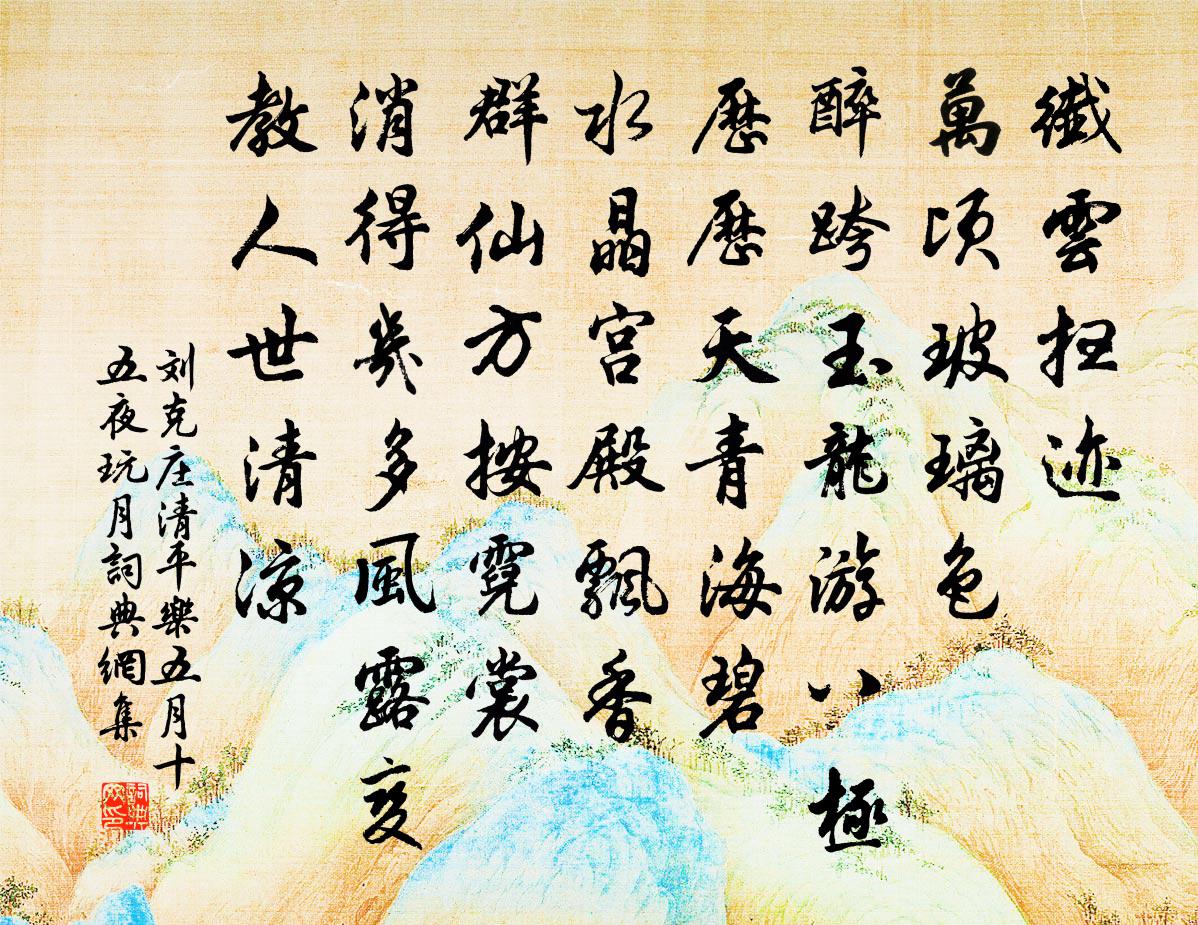 纖雲扫迹
萬頃玻璃色
醉跨玉龍游八極
歷歷天青海碧
水晶宫殿飄香
群仙方按霓裳
消得幾多風露变
教人世清涼
刘克庄清平樂五月十
五夜玩月詞典網集
詞典网印